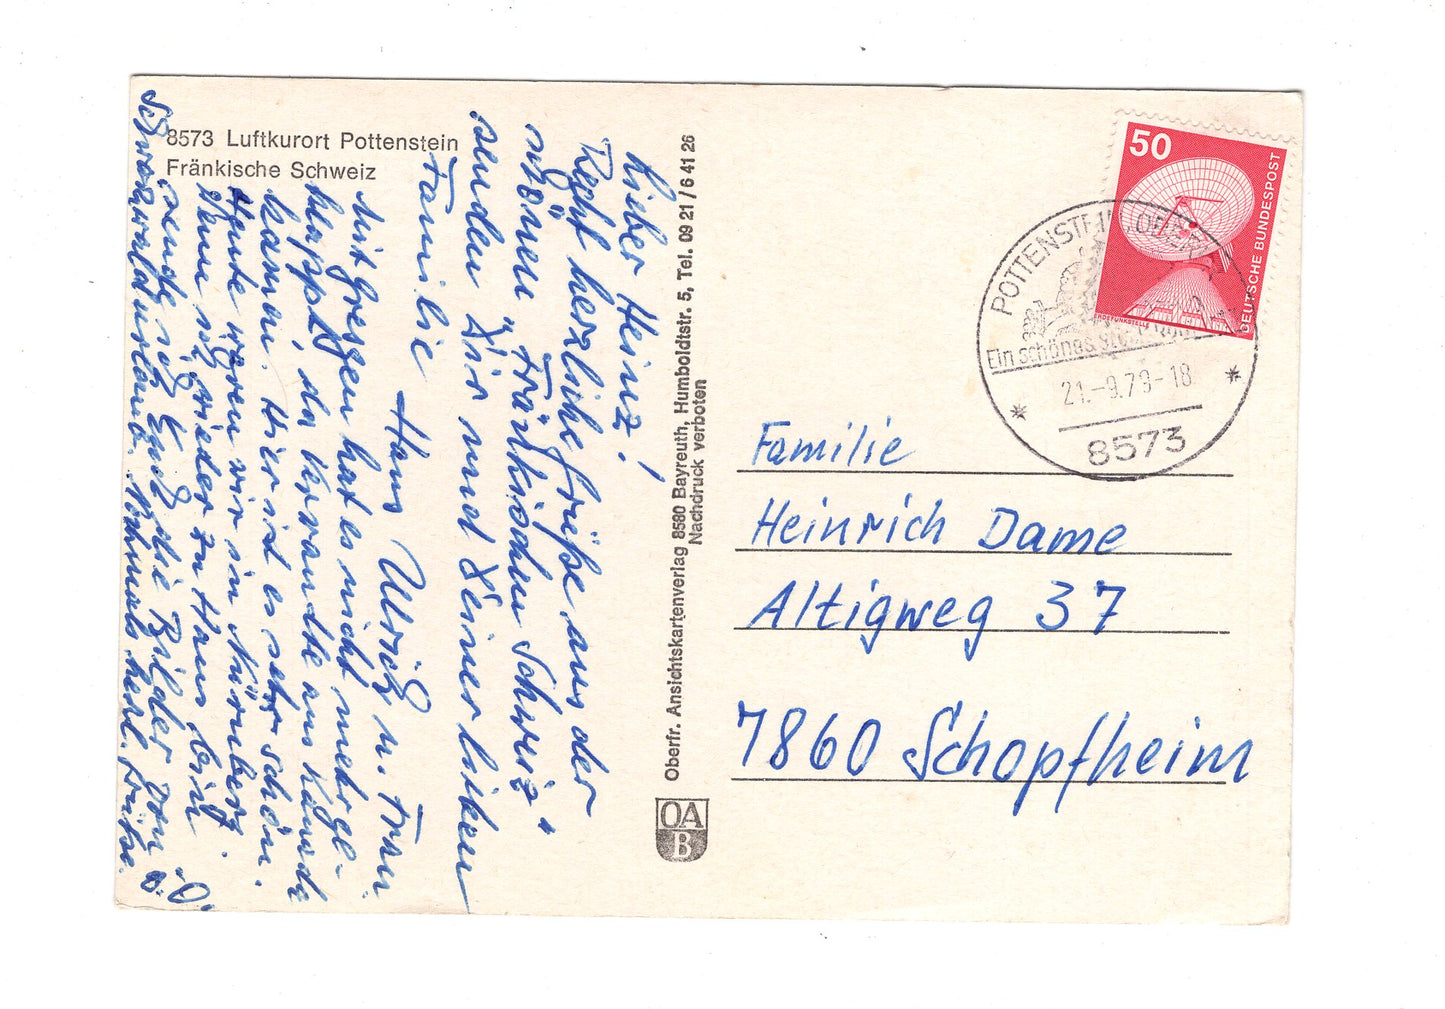 8573 Luftkurort Pottenstein
Fränkische Schweiz
Lieber Heinz!
Recht herzliche Grüße aus der
schönen "Fränkischen Schweiz"
senden Dir und Deiner lieben
Familie Hans Ulrich u. Frau
Mitgresgen hat es nicht mehr ge-
klappt, da Verwandte aus Kanada
kamen. Hier ist es sehr schön.
Heute waren wir in Nürnberg.
Wenn ich wieder zu Haus bin
sende ich Euch die Bilder von
Schwarzwaldurlaub. Nochmals herzl. Grüße
Oberfr. Ansichtskartenverlag 8580 Bayreuth, Humboldtstr. 5, Tel. 09 21 / 6 41 26
Nachdruck verboten
OA
B
50
DEUTSCHE BUNDESPOST
ERDEFUNKSTELLE
POTTENSTEIN, OBERFR
Ein schönes
21.-9.79-18
8573
Familie
Heinrich Dame
Altigweg 37
7860 Schopfheim